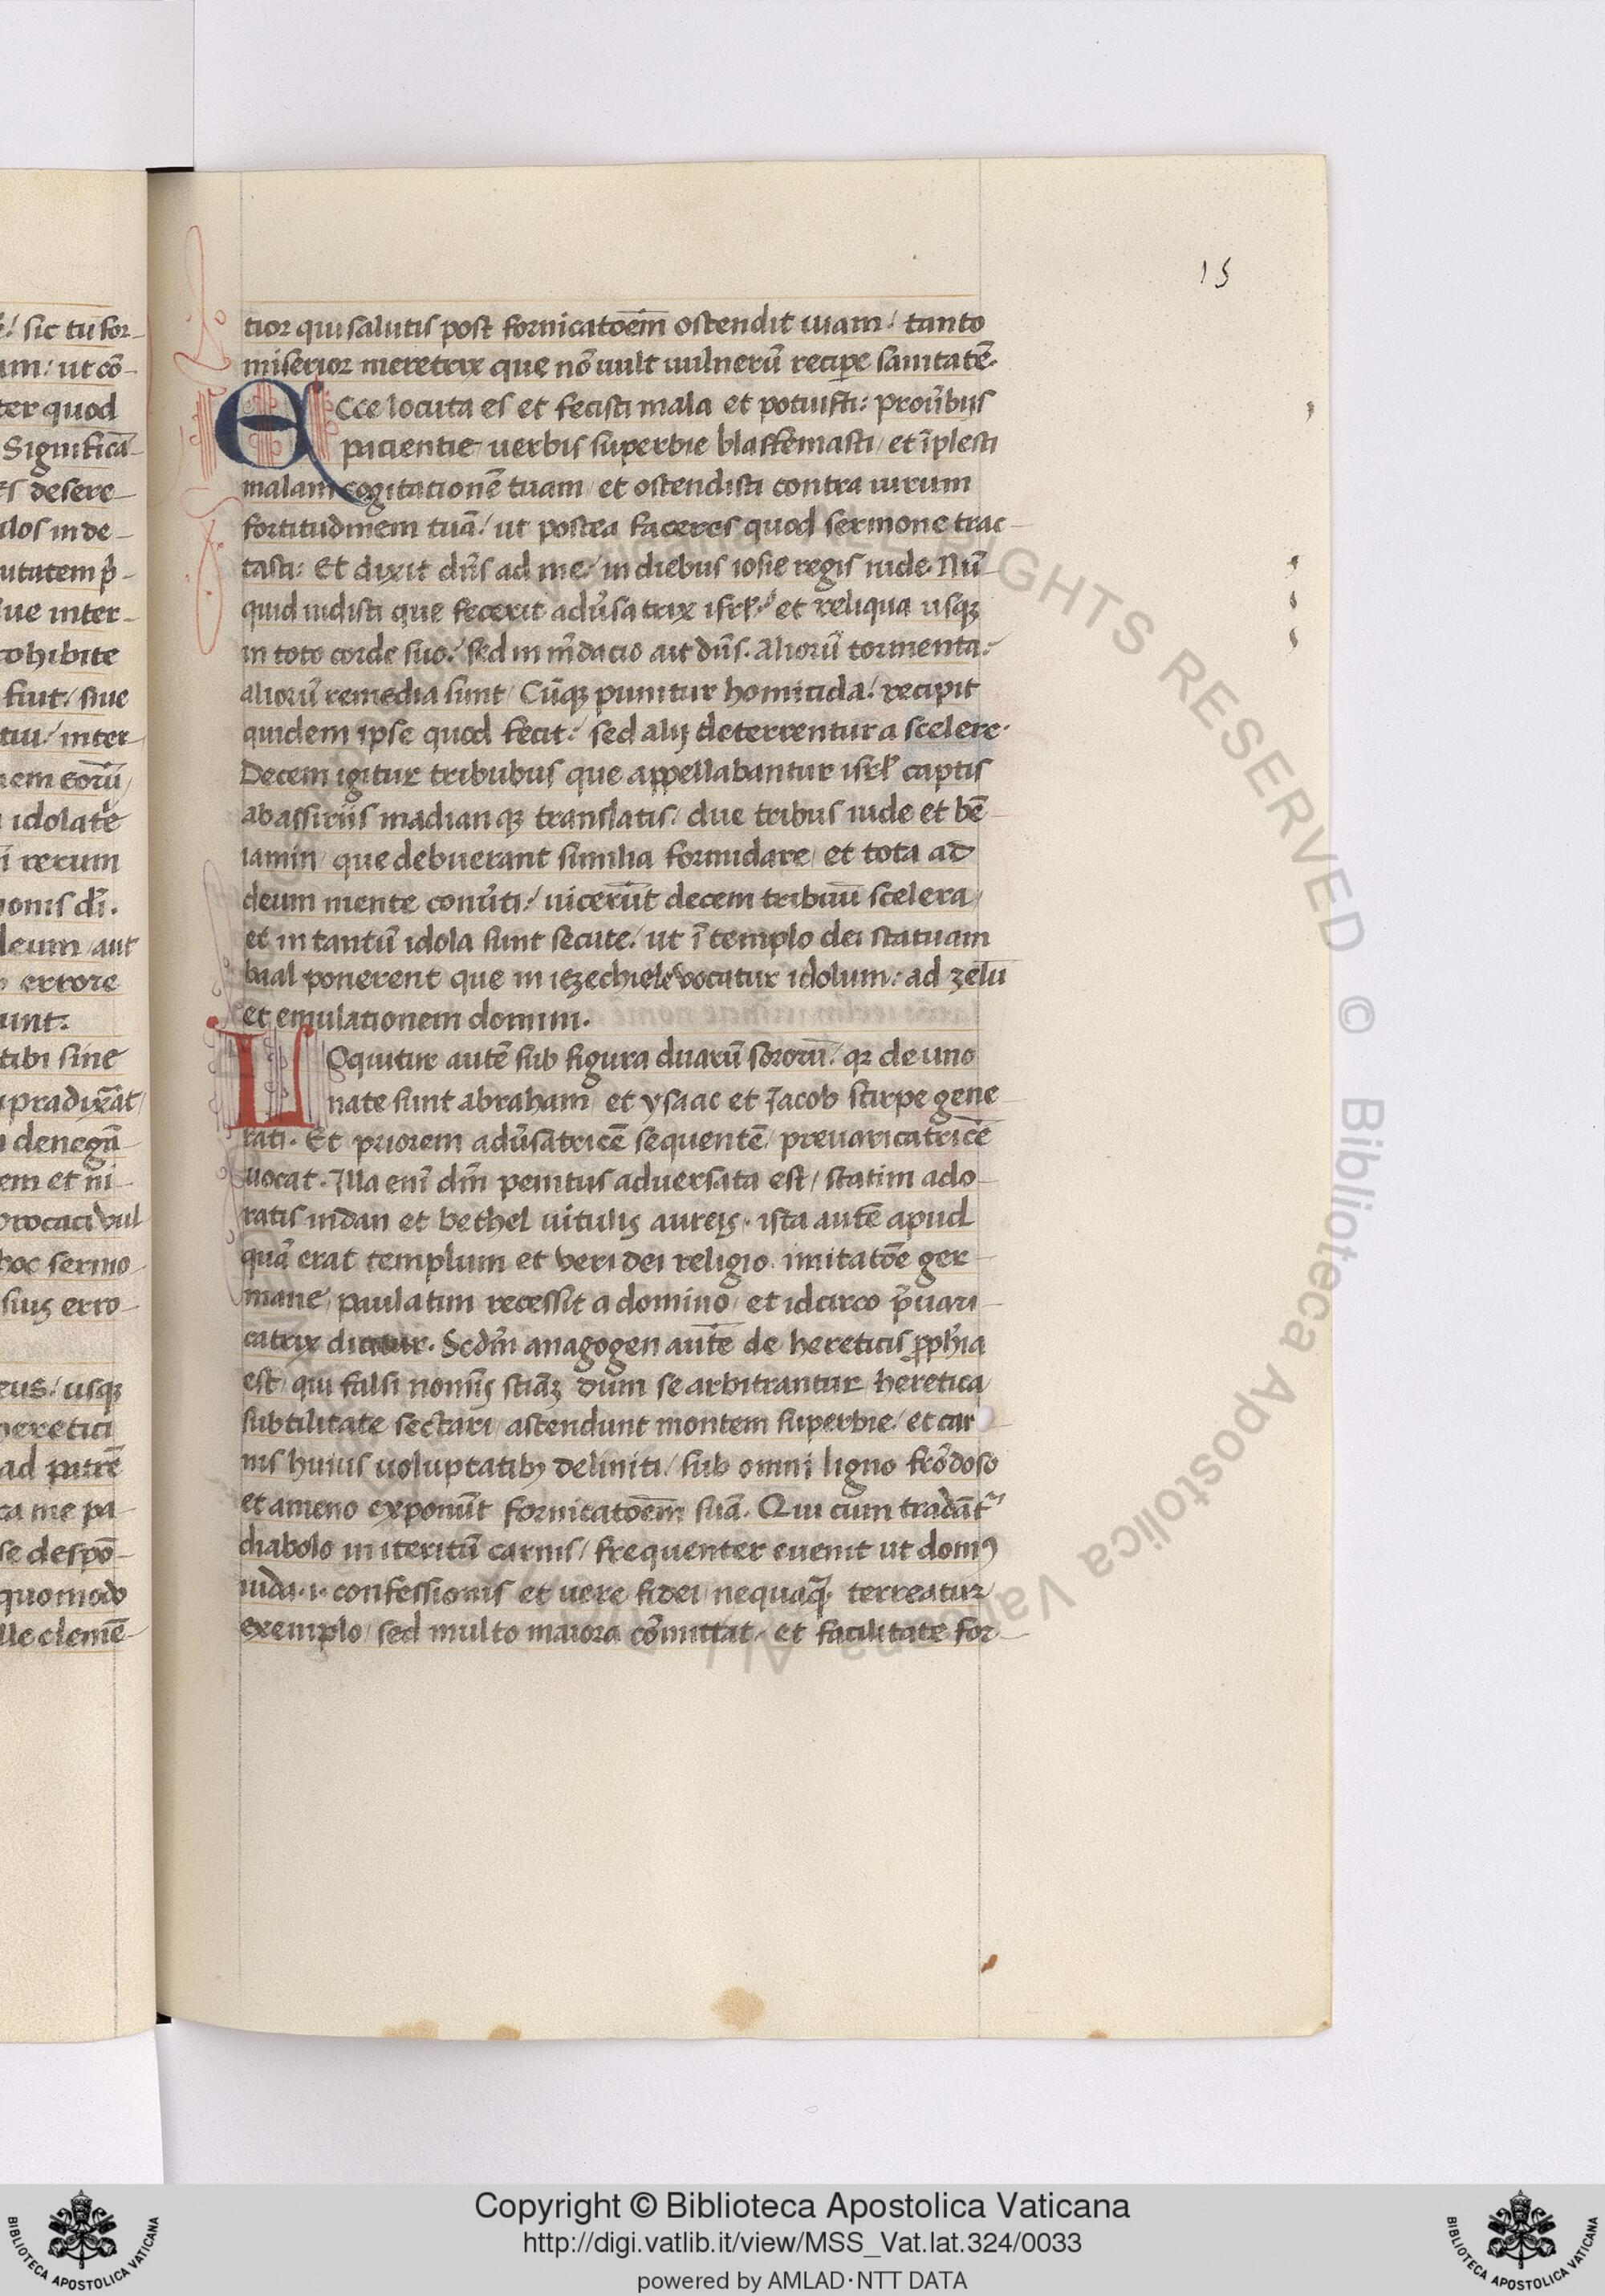 15
tior qui salutis post fornicatōem ostendit uiam / tanto
miserior meretrix que nō uult uulnerū recipe sanitatē.
ECce locuta es et fecisti mala et potuisti: pro ūbus
pacientie / uerbis superbie blasfemasti / et īplesti
malam cogitationē tuam / et ostendisti contra uirum
fortitudinem tuā / ut postea faceres quod sermone trac-
tasti: Et dixit dn̄s ad me / in diebus iosie regis iude. Nū-
quid uidisti que fecerit adūsatrix isrl̄ / et reliqua usqꝫ
in toto corde suo / sed in m̄dacio ait dn̄s. Aliorū tormenta /
aliorū remedia sunt / Cūqꝫ punitur homicida / recipit
quidem ipse quod fecit / sed alij deterrentur a scelere.
Decem igitur tribubus que appellabantur isrl̄ captis
ab assiriis madianqꝫ translatis / due tribus iude et bē-
iamin / que debuerant similia formidare / et tota ad
deum mente conūti / uicerūt decem tribuū scelera /
et in tantū idola sunt secute / ut ī templo dei statuam
baal ponerent que in iezechiele vocatur idolum: ad zelū
et emulationem domini.
LOquitur autē sub figura duarū sororū / qꝛ de uno
nate sunt abraham / et ysaac et Jacob stirpe gene-
rati. Et priorem adūsatricē sequentē / preuaricatricē
uocat. Illa enī dn̄m penitus aduersata est / statim ado-
ratis indan et bethel uitulis aureis. ista autē apud
quā erat templum et veri dei religio. imitatōe ger-
mane / paulatim recessit a domino / et idcirco p̄uari-
catrix dicitur. Scd̄m anagogen autē de hereticis ꝓph̄ia
est / qui falsi nomīs sciāꝫ dum se arbitrantur heretica
subtilitate sectari / ascendunt montem superbie / et car
nis huius uoluptatibꝫ deliniti / sub omni ligno frōdoso
et ameno exponūt fornicatōem suā. Qui cum tradāt̄
diabolo in iteritū carnis / frequenter euenit ut domꝰ
iuda .i. confessionis et uere fidei / nequaq̄ terreatur
exemplo / sed multo maiora cōmittat / et facilitate for-
Copyright © Biblioteca Apostolica Vaticana
http://digi.vatlib.it/view/MSS_Vat.lat.324/0033
powered by AMLAD·NTT DATA